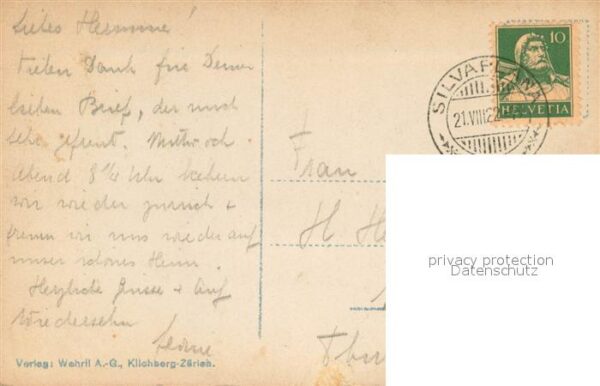 Liebes Hermine!
Vielen Dank für Deinen
lieben Brief, der mich
sehr gefreut. Mittwoch
abend 8¼ Uhr kehren
wir wieder zurück +
freuen wir uns wieder auf
unser schönes Heim.
Herzliche Grüsse + Auf
Wiedersehn
Verlag: Wehrli A.-G., Kilchberg-Zürich.
10
HELVETIA
SILVAPLANA
21.VIII.22
Frau
H
privacy protection
Datenschutz